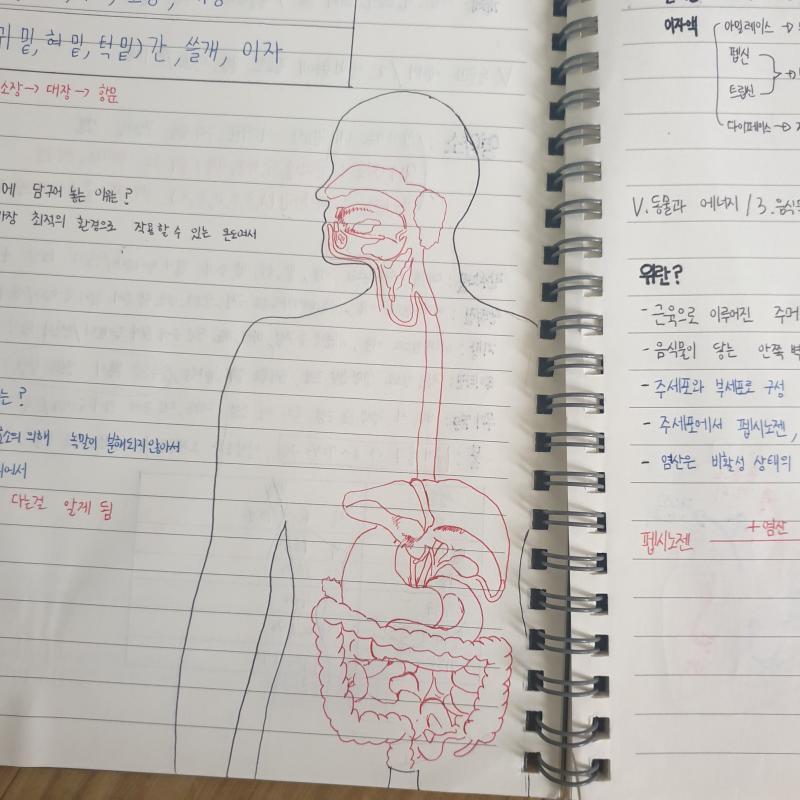 귀 밑, 혀 밑, 턱 밑) 간, 쓸개, 이자
소장 → 대장 → 항문
에 담구어 놓는 이유는?
가장 최적의 환경으로 작용할 수 있는 온도여서
는?
효소의 의해 녹말이 분해되지않아서
다는걸 알게 됨
이자액
아밀레이스 →
펩신
트립신
다이페이스 →
V. 동물과 에너지 / 3. 음식물
위란?
- 근육으로 이루어진 주머
- 음식물이 닿는 안쪽 벽
- 주세포와 부세포로 구성
- 주세포에서 펩시노젠,
- 염산은 비활성 상태의
펩시노젠 + 염산